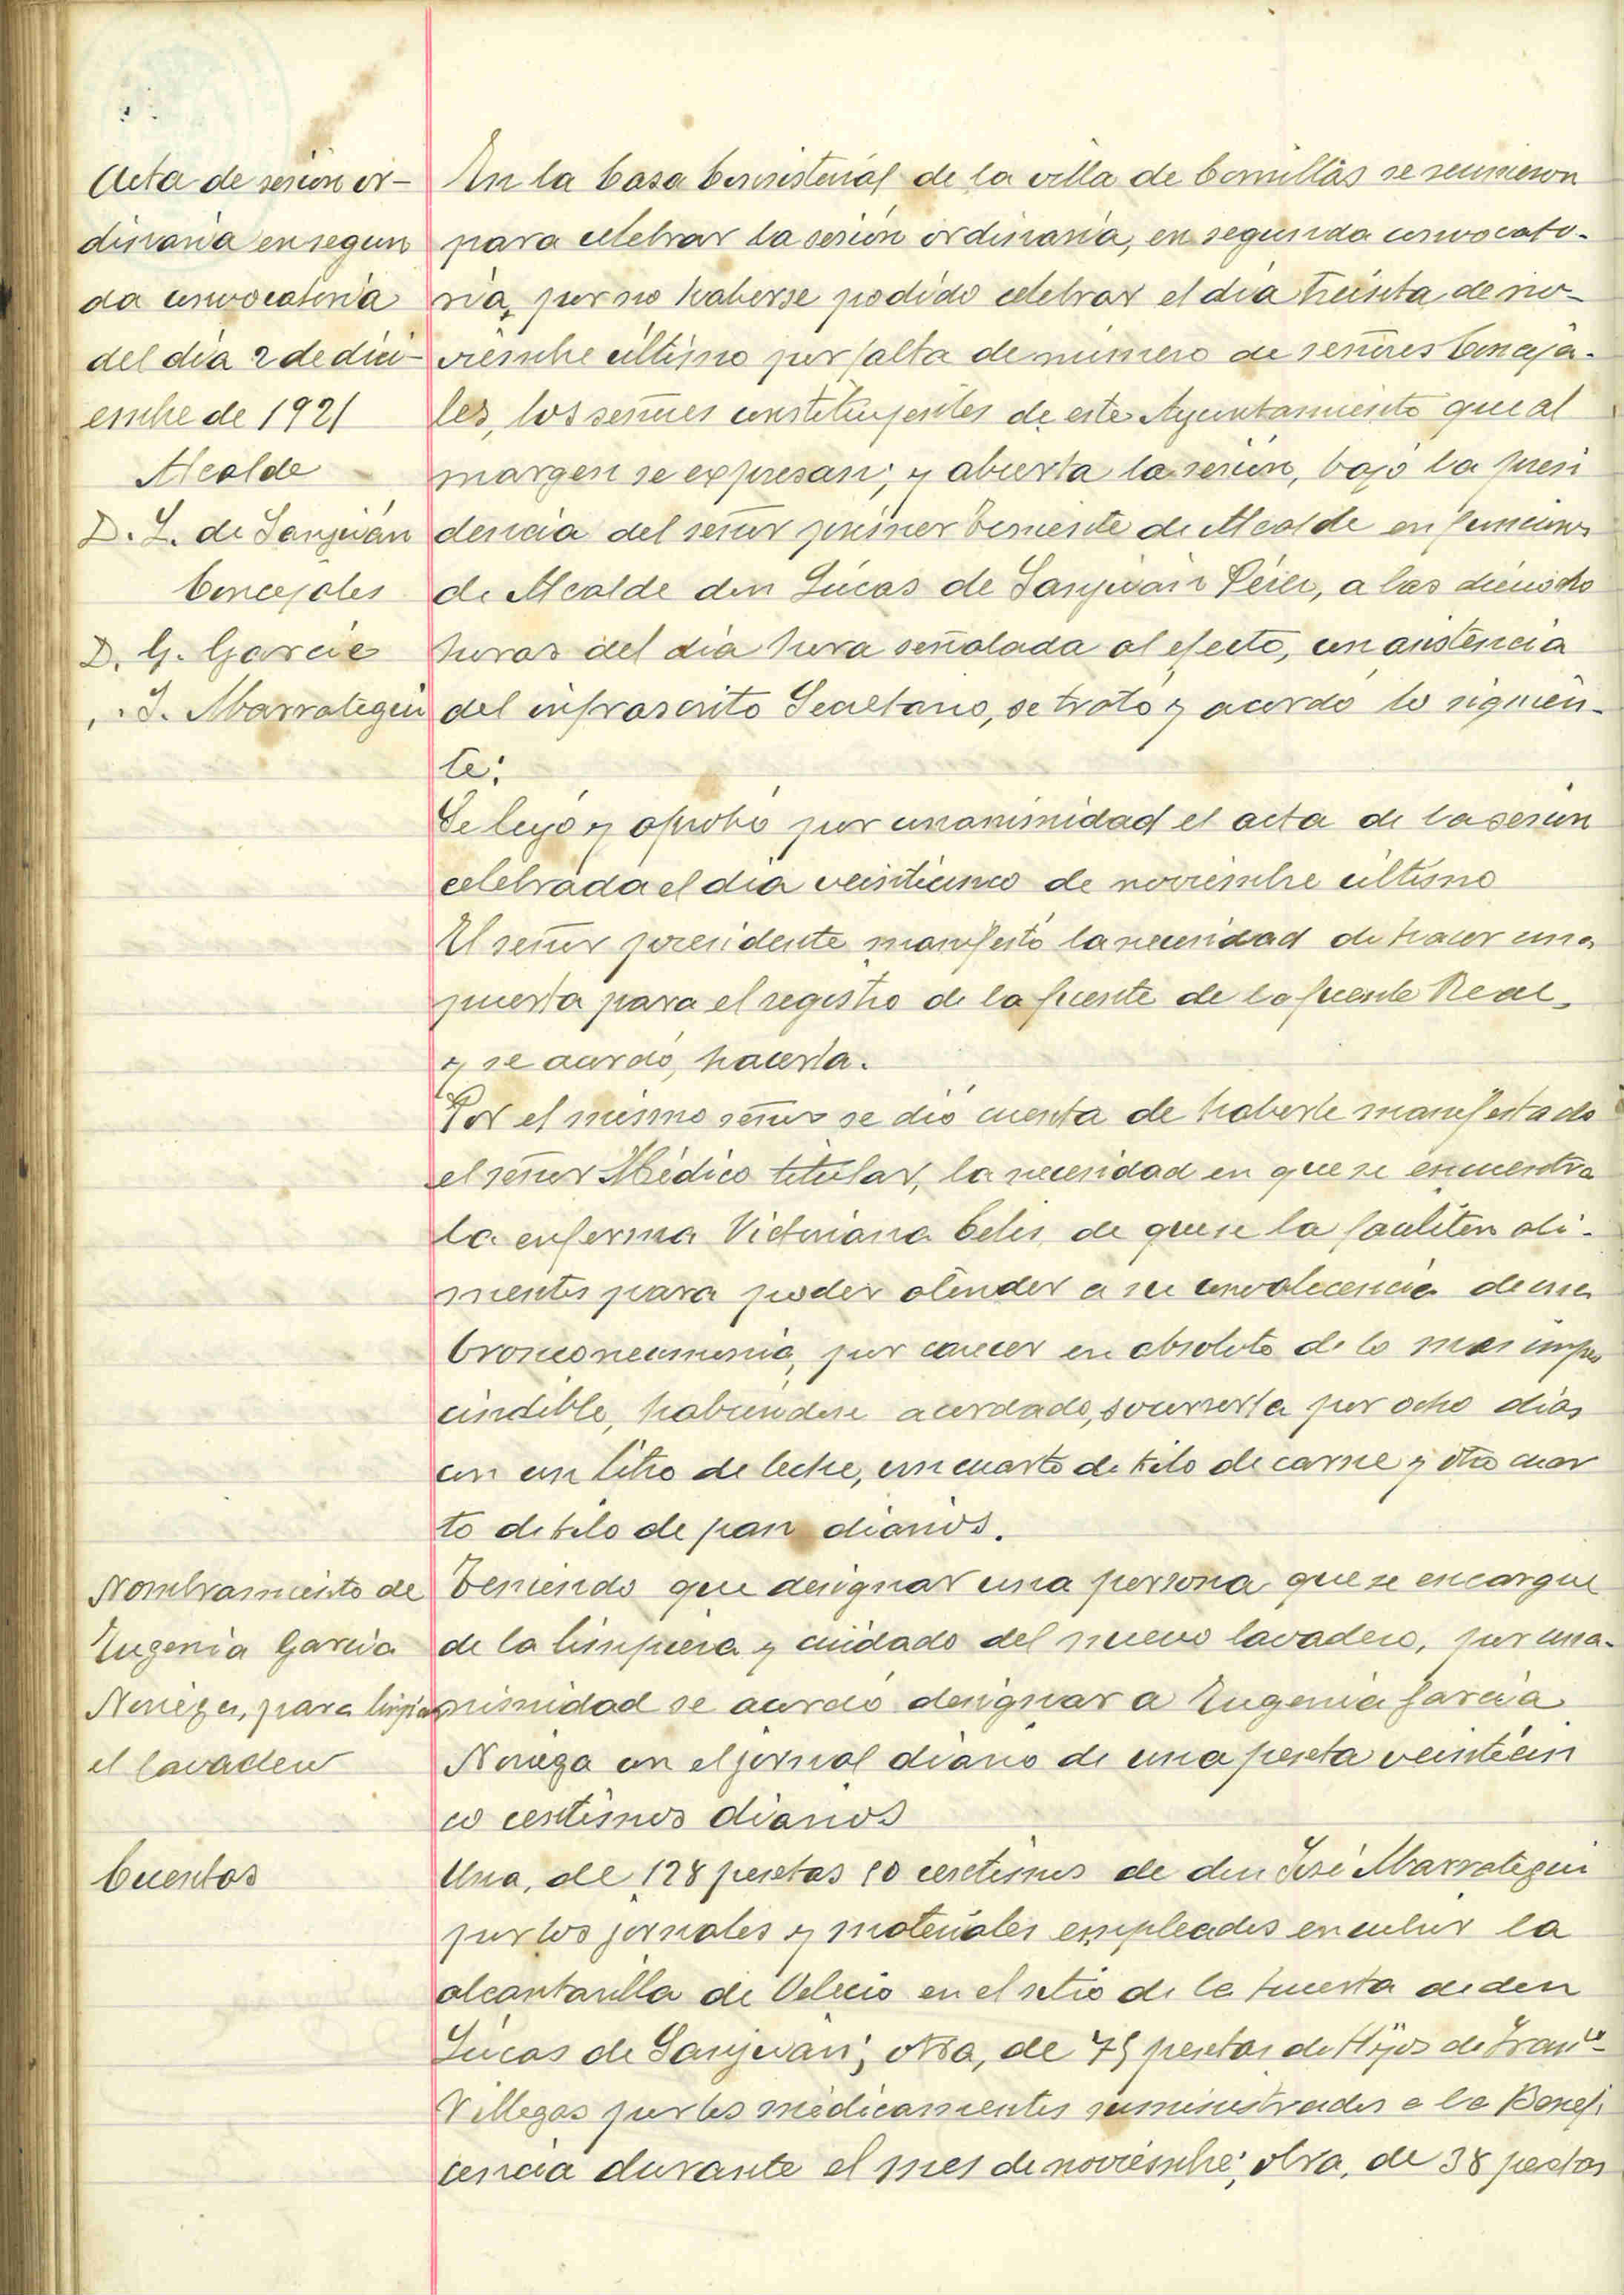 Acta de sesión or-
dinaria en segun
da convocatoria
del día 2 de dici-
embre de 1921
Alcalde
D. L. de Sanjuán
Concejales
D. G. García
" J. Abarrategui
En la Casa Consistorial de la villa de Comillas se reunieron
para celebrar la sesión ordinaria, en segunda convocato-
ria, por no haberse podido celebrar el día treinta de no-
viembre último por falta de número de señores Conceja-
les, los señores constituyentes de este Ayuntamiento que al
margen se expresan; y abierta la sesión, bajo la presi
dencia del señor primer Teniente de Alcalde en funciones
de Alcalde don Lúcas de Sanjuán Pérez, a las dieciocho
horas del día hora señalada al efecto, con asistencia
del infrascrito Secretario, se trató y acordó lo siguien-
te:
Se leyó y aprobó por unanimidad el acta de la sesión
celebrada el día veinticinco de noviembre último
El señor presidente manifestó la necesidad de hacer una
puerta para el registro de la fuente de la fuente Real,
y se acordó, hacerla.
Por el mismo señor se dió cuenta de haberle manifestado
el señor Médico titular, la necesidad en que se encuentra
la enferma Victoriana Celis de que se la faciliten ali-
mentos para poder atender a su convalecencia de una
bronconeumonia, por carecer en absoluto de lo mas impres
cindible, habiéndose acordado, socorrerla por ocho días
con un litro de leche, un cuarto de kilo de carne y otro cuar
to de kilo de pan diarios.
Nombramiento de
Eugenia García
Noriega, para limpiar
el lavadero
Teniendo que designar una persona que se encargue
de la limpieza y cuidado del nuevo lavadero, por una-
nimidad se acordó designar a Eugenia García
Noriega con el jornal diario de una peseta veinticin
co centimos diarios
Cuentas
Una, de 128 pesetas 10 centimos de don José Abarrategui
por los jornales y materiales empleados en cubrir la
alcantarilla de Velecio en el sitio de la huerta de don
Lúcas de Sanjuán; otra, de 75 pesetas de Hijos de Franco
Villegas por los médicamentos suministrados a la Benefi
cencia durante el mes de noviembre; otra, de 38 pesetas